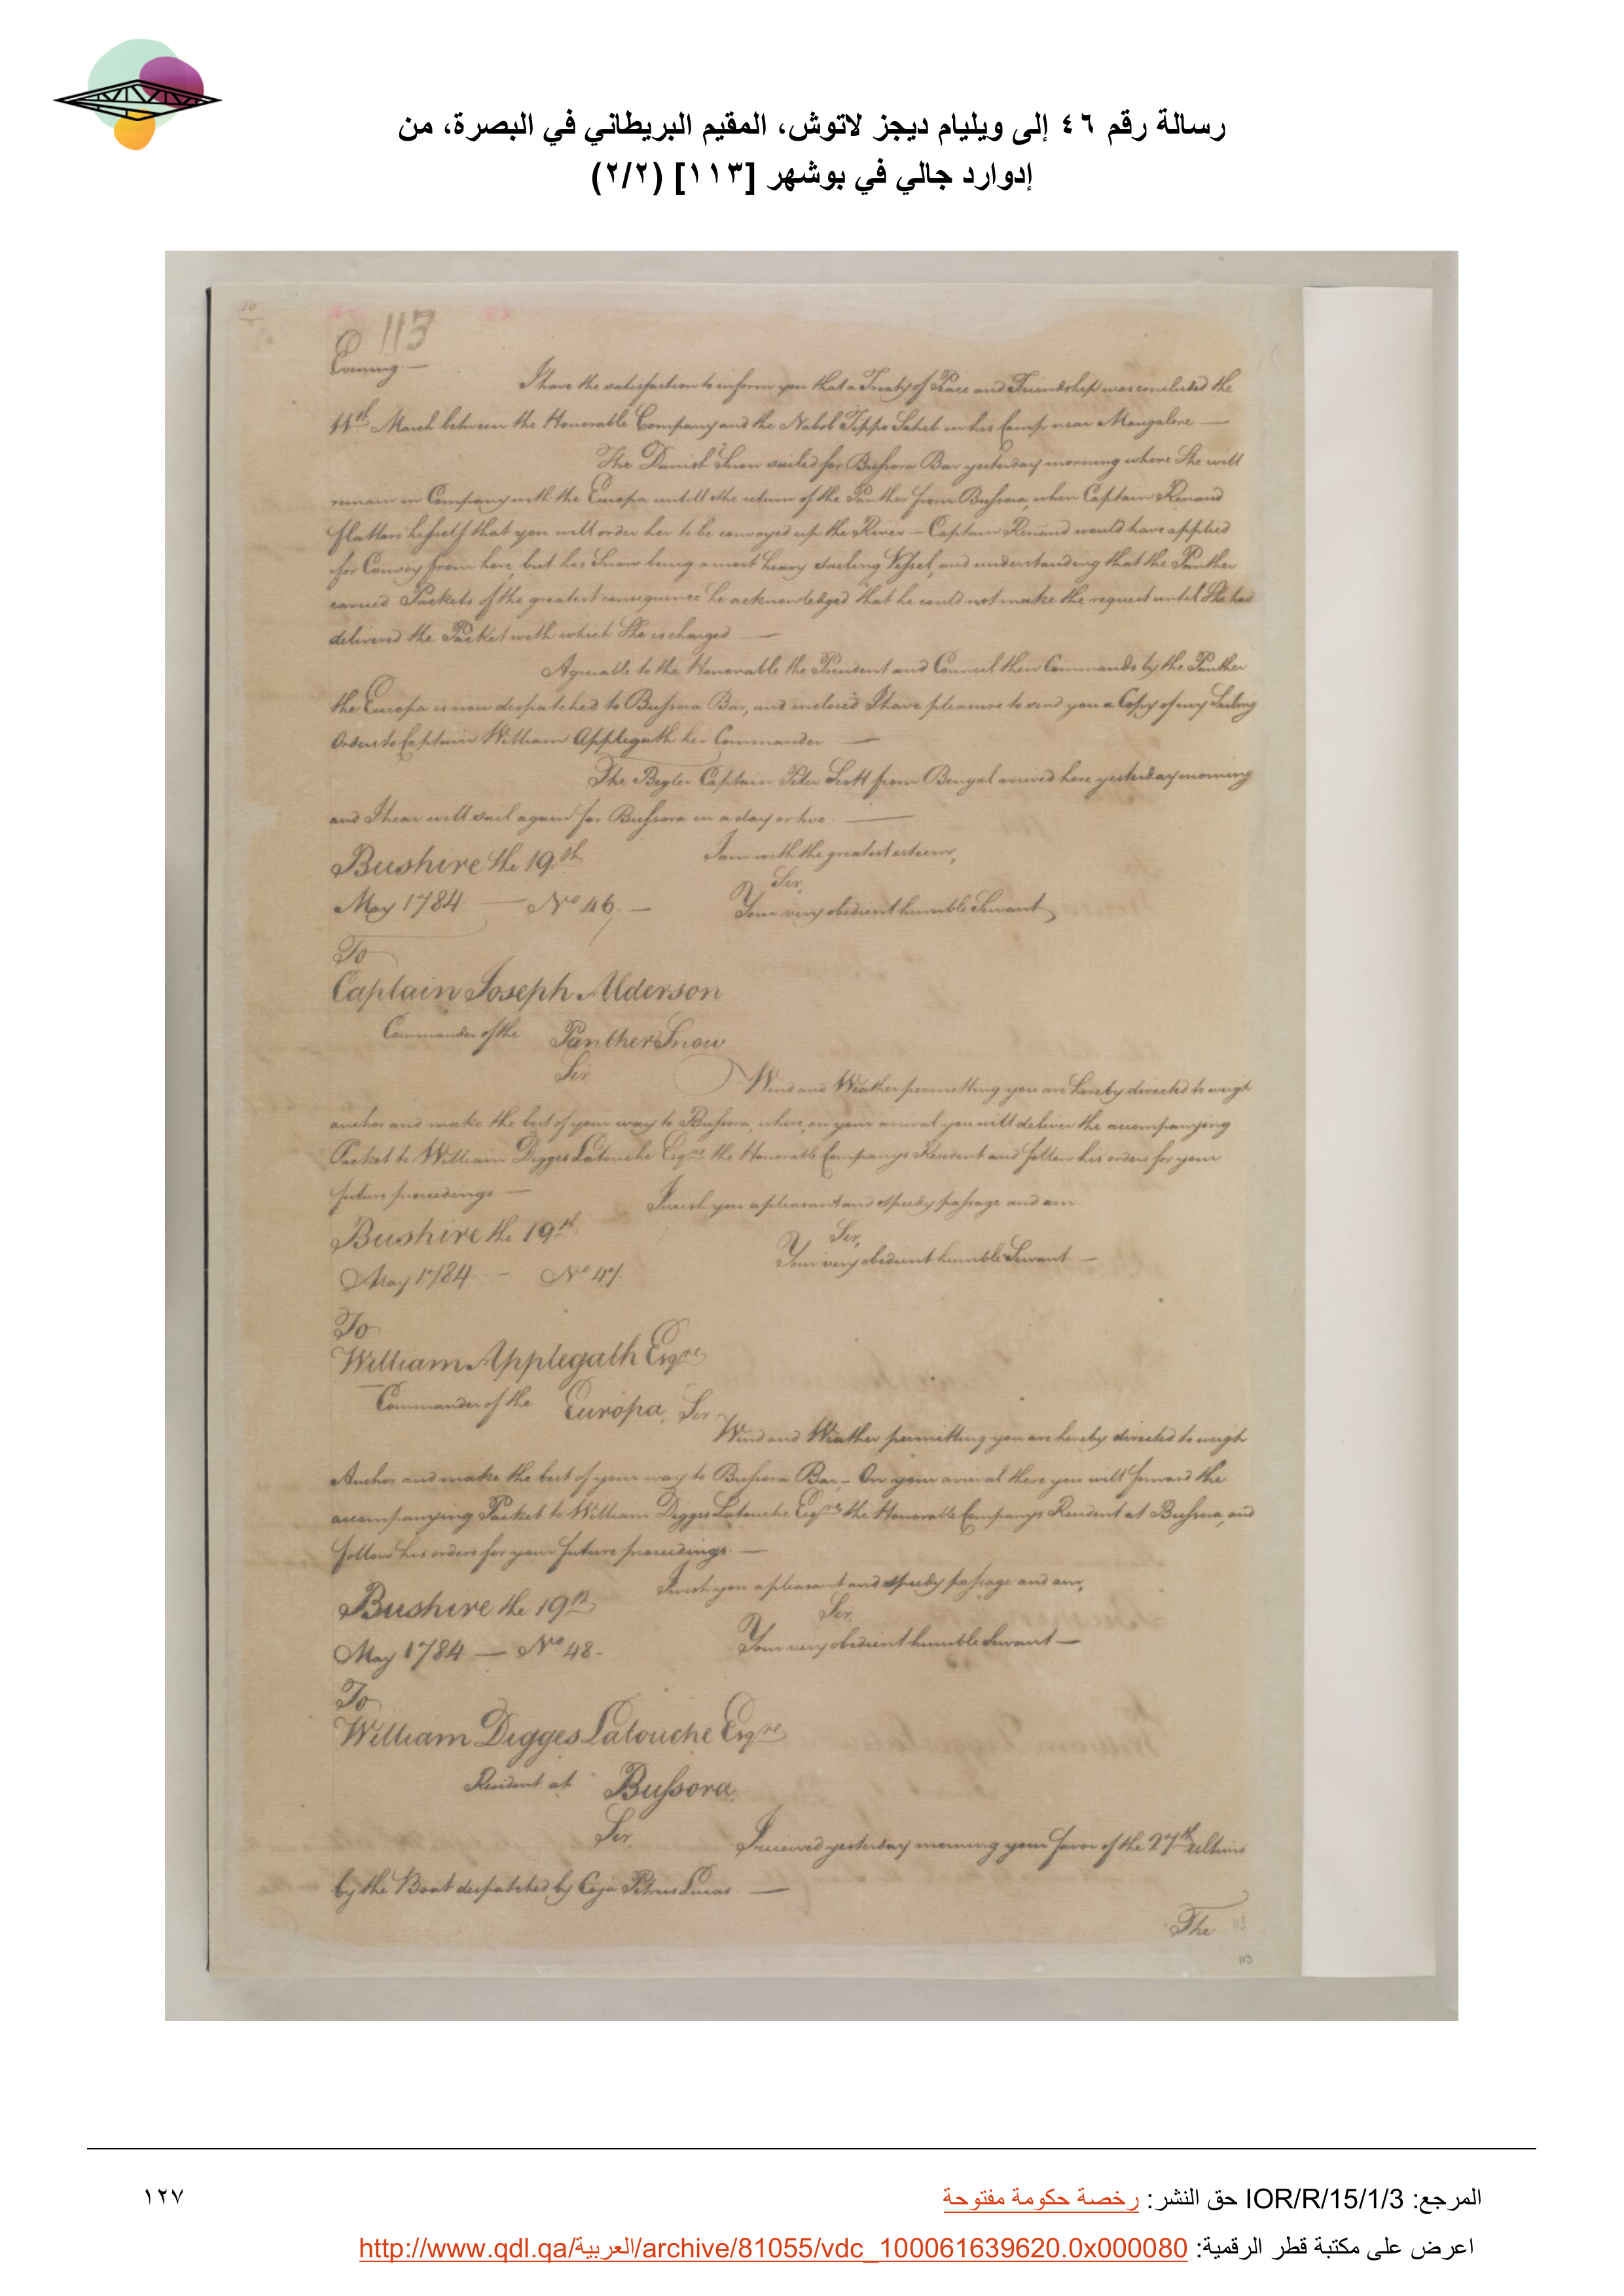 رسالة رقم ٤٦ إلى ويليام ديجز لاتوش، المقيم البريطاني في البصرة، من
إدوارد جالي في بوشهر [١١٣] (٢/٢)
113
Evening. —
I have the satisfaction to inform you that a Treaty of Peace and Friendship was concluded the
11th March between the Honorable Company and the Nabob Tippo Saheb in his Camp near Mangalore —
The Danish Snow sailed for Bussora Bar yesterday morning where She will
remain in Company with the Europa untill the return of the Panther from Bussora, when Captain Renaud
flatters hisself that you will order her to be convoyed up the River — Captain Renaud would have applied
for Convoy from here, but his Snow being a most heavy sailing Vessel, and understanding that the Panther
carried Packets of the greatest consequence he acknowledged that he could not make the request until She had
delivered the Packet with which She is charged —
Agreable to the Honorable the President and Council their Commands by the Panther
the Europa is now despatched to Bussora Bar, and inclosed I have pleasure to send you a Copy of my Sailing
Orders to Captain William Applegath her Commander —
The Begler Captain Peter Scott from Bengal arrived here yesterday morning
and I hear will sail again for Bussora in a day or two. —
I am with the greatest esteem,
Bushire the 19th
Sir,
May 1784 — No 46. —
Your very obedient humble Servant
To
Captain Joseph Alderson
Commander of the Panther Snow
Sir
Wind and Weather permitting you are hereby directed to weigh
anchor and make the best of your way to Bussora, where, on your arrival you will deliver the accompanying
Packet to William Digges Latouche Esqre the Honorable Companys Resident and follow his orders for your
future proceedings —
I wish you a pleasant and speedy passage and am
Bushire the 19th
Sir,
Your very obedient humble Servant —
May 1784. — No 47.
To
William Applegath Esqre
Commander of the Europa, Sir
Wind and Weather permitting you are hereby directed to weigh
Anchor and make the best of your way to Bussora Bar, — On your arrival there you will forward the
accompanying Packet to William Digges Latouche Esqre the Honorable Companys Resident at Bussora, and
follow his orders for your future proceedings. —
I wish you a pleasant and speedy passage and am,
Bushire the 19th
Sir,
Your very obedient humble Servant —
May 1784 — No 48.
To
William Digges Latouche Esqre
Resident at Bussora.
Sir.
I received yesterday morning your favor of the 27th ultimo
by the Boat despatched by Coja Petrus Lucas —
The
113
المرجع: IOR/R/15/1/3 حق النشر: رخصة حكومة مفتوحة
١٢٧
اعرض على مكتبة قطر الرقمية: http://www.qdl.qa/العربية/archive/81055/vdc_100061639620.0x000080